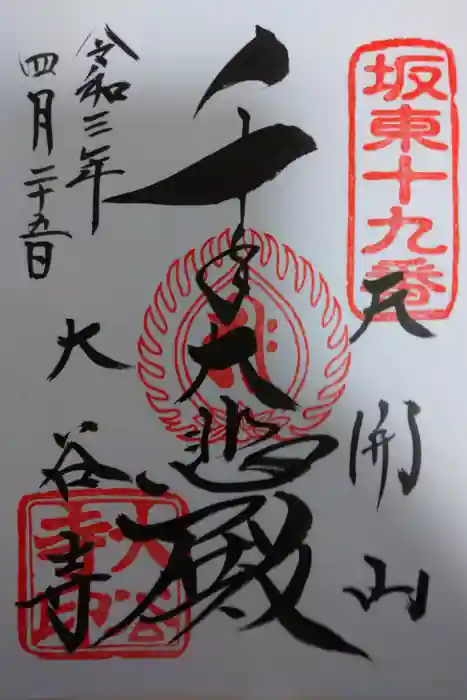 坂東十九番
天開山
千手大悲殿
令和三年
四月二十五日
大谷寺
大谷寺印